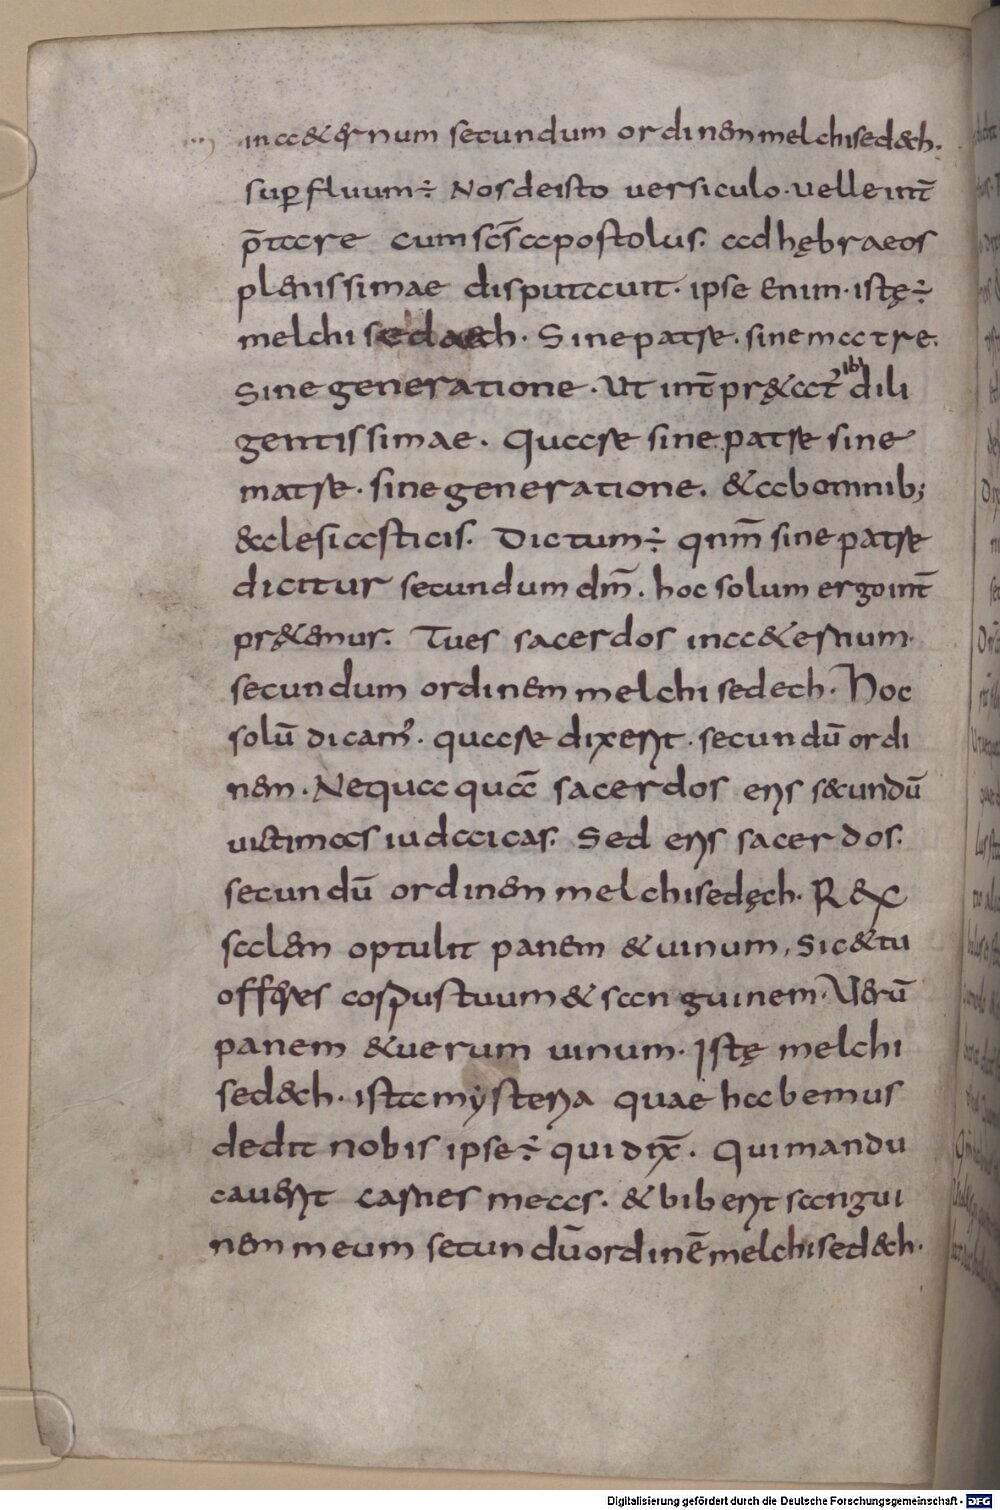 in aeternum secundum ordinem melchisedech.
sup̱fluum÷ Nos de isto uersiculo· uelle int̄
p̄tare cum sc̄s apostolus. ad hębraeos
plenissimae disputauit· ipse enim· istę÷
melchisedaech· Sine patre· sine matre.
Sine generatione· Ut int̄pręetat᷒ ibi dili
gentissimae· Quare sine patre sine
matre· sine generatione. & ab omnib;
ecclesiasticis. Dictum÷ qnm̄ sine patre
dicitur secundum dm̄. hoc solum ergo int̄
pręetemur. Tu es sacerdos in aeternum·
secundum ordinem melchisedech· Hoc
solū dicam᷒· quare dixerit· secundū ordi
nem· Nequaquā sacerdos eris secundū
uictimas iudaicas. Sed eris sacerdos.
secundū ordinem melchisedęch· Rex
salem optulit panem & uinum, Sic & tu
offeres corpus tuum & sanguinem· Uerū
panem & uerum uinum· Istę melchi
sedech· ista mẏsteria quae habemus
dedit nobis ipse÷ qui dix̄. Qui mandu
cauerit carnes meas. & biberit sangui
nem meum secundū ordinē melchisedech·
Digitalisierung gefördert durch die Deutsche Forschungsgemeinschaft - DFG